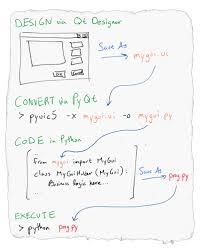 DESIGN via Qt Designer
Save As
mygui.ui
CONVERT via PyQt
> pyuic5 -x mygui.ui -o mygui.py
CODE in Python
From mygui import MyGui
class MyGuiMaker (MyGui):
Business logic here...
Save As
prog.py
EXECUTE
> python prog.py